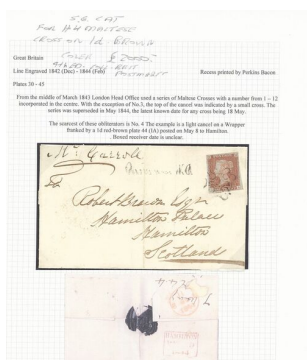 S.G. CAT
FOR No 4 MALTESE
CROSS ON 1d. BROWN IS
Great Britain
COVER £
Line Engraved 1842 (Dec) - 1844 (Feb)
POSTMARK
Recess printed by Perkins Bacon
Plates 30 - 45
From the middle of March 1843 London Head Office used a series of Maltese Crosses with a number from 1 – 12
incorporated in the centre. With the exception of No.3, the top of the cancel was indicated by a small cross. The
series was superseded in May 1844, the latest known date for any cross being 18 May.
The scarcest of these obliterators is No. 4 The example is a light cancel on a Wrapper
franked by a 1d red-brown plate 44 (IA) posted on May 8 to Hamilton
. Boxed receiver date is unclear.
Mr Carroll
To
Robert Brown Esqr
Hamilton Palace
Hamilton
Scotland